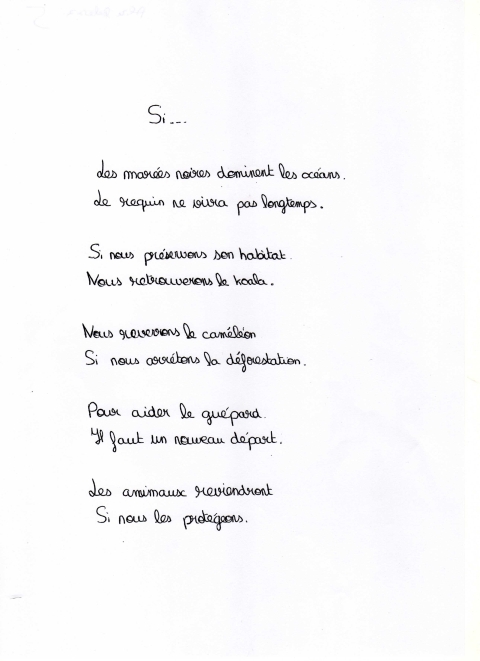 Si...
Les marées noires dominent les océans.
Le requin ne vivra pas longtemps.
Si nous préservons son habitat.
Nous retrouverons le koala.
Nous reverrons le caméléon
Si nous arrêtons la déforestation.
Pour aider le guépard.
Il faut un nouveau départ.
Les animaux reviendront
Si nous les protégeons.